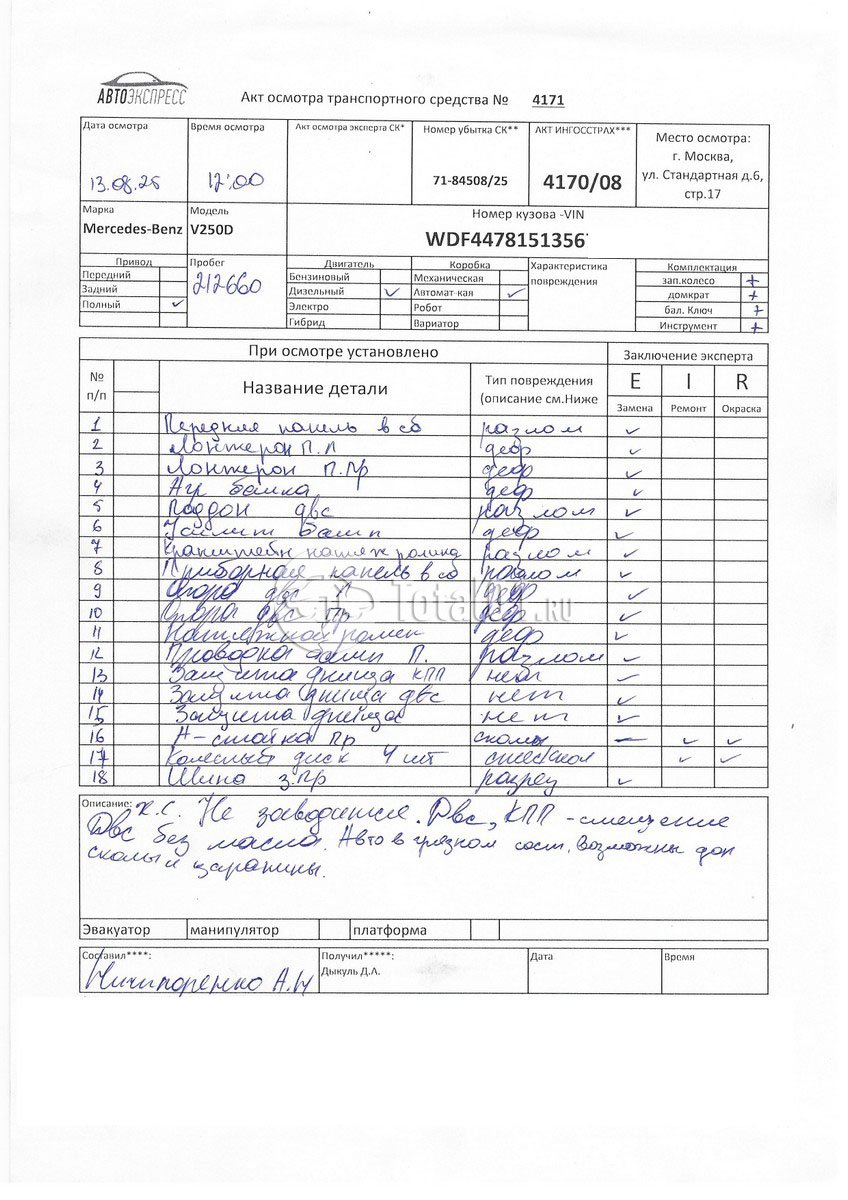 АВТОЭКСПРЕСС
Акт осмотра транспортного средства № 4171
Дата осмотра Время осмотра Акт осмотра эксперта СК* Номер убытка СК** АКТ ИНГОССТРАХ*** Место осмотра:
г. Москва,
13.08.25 12:00 71-84508/25 4170/08 ул. Стандартная д.6,
стр.17
Марка Модель Номер кузова -VIN
Mercedes-Benz V250D WDF4478151356
Привод Пробег Двигатель Коробка Характеристика Комплектация
Передний 212660 Бензиновый Механическая повреждения зап.колесо +
Задний Дизельный ✓ Автомат-кая ✓ домкрат +
Полный ✓ Электро Робот бал. Ключ +
Гибрид Вариатор Инструмент +
При осмотре установлено Заключение эксперта
№ п/п Название детали Тип повреждения (описание см.Ниже E I R
Замена Ремонт Окраска
1 Передняя панель в сб разлом ✓
2 Лонжерон П.Л деф ✓
3 Лонжерон П.Пр деф ✓
4 балка деф ✓
5 Поддон двс разлом ✓
6 Усилит бамп деф ✓
7 Кронштейн натяж ролика разлом ✓
8 Приборная панель в сб разлом ✓
9 Опора двс Л деф ✓
10 Опора двс Пр деф ✓
11 деф ✓
12 Проводка бамп П. разлом ✓
13 Защита днища КПП нет ✓
14 Защита днища двс нет ✓
15 Защита днища нет ✓
16 А-стойка Пр сколы — ✓ ✓
17 Колесный диск 4 шт ✓ ✓
18 Шина з.Пр разрез ✓
Описание: К.С. Не заводится. Двс, КПП - смещение
Двс без масла. Авто в грязном сост. Возможны доп
сколы и царапины.
Эвакуатор манипулятор платформа
Составил****: Получил*****: Дата Время
Ничипоренко А.Н Дыкуль Д.А.
TotalCar.RU